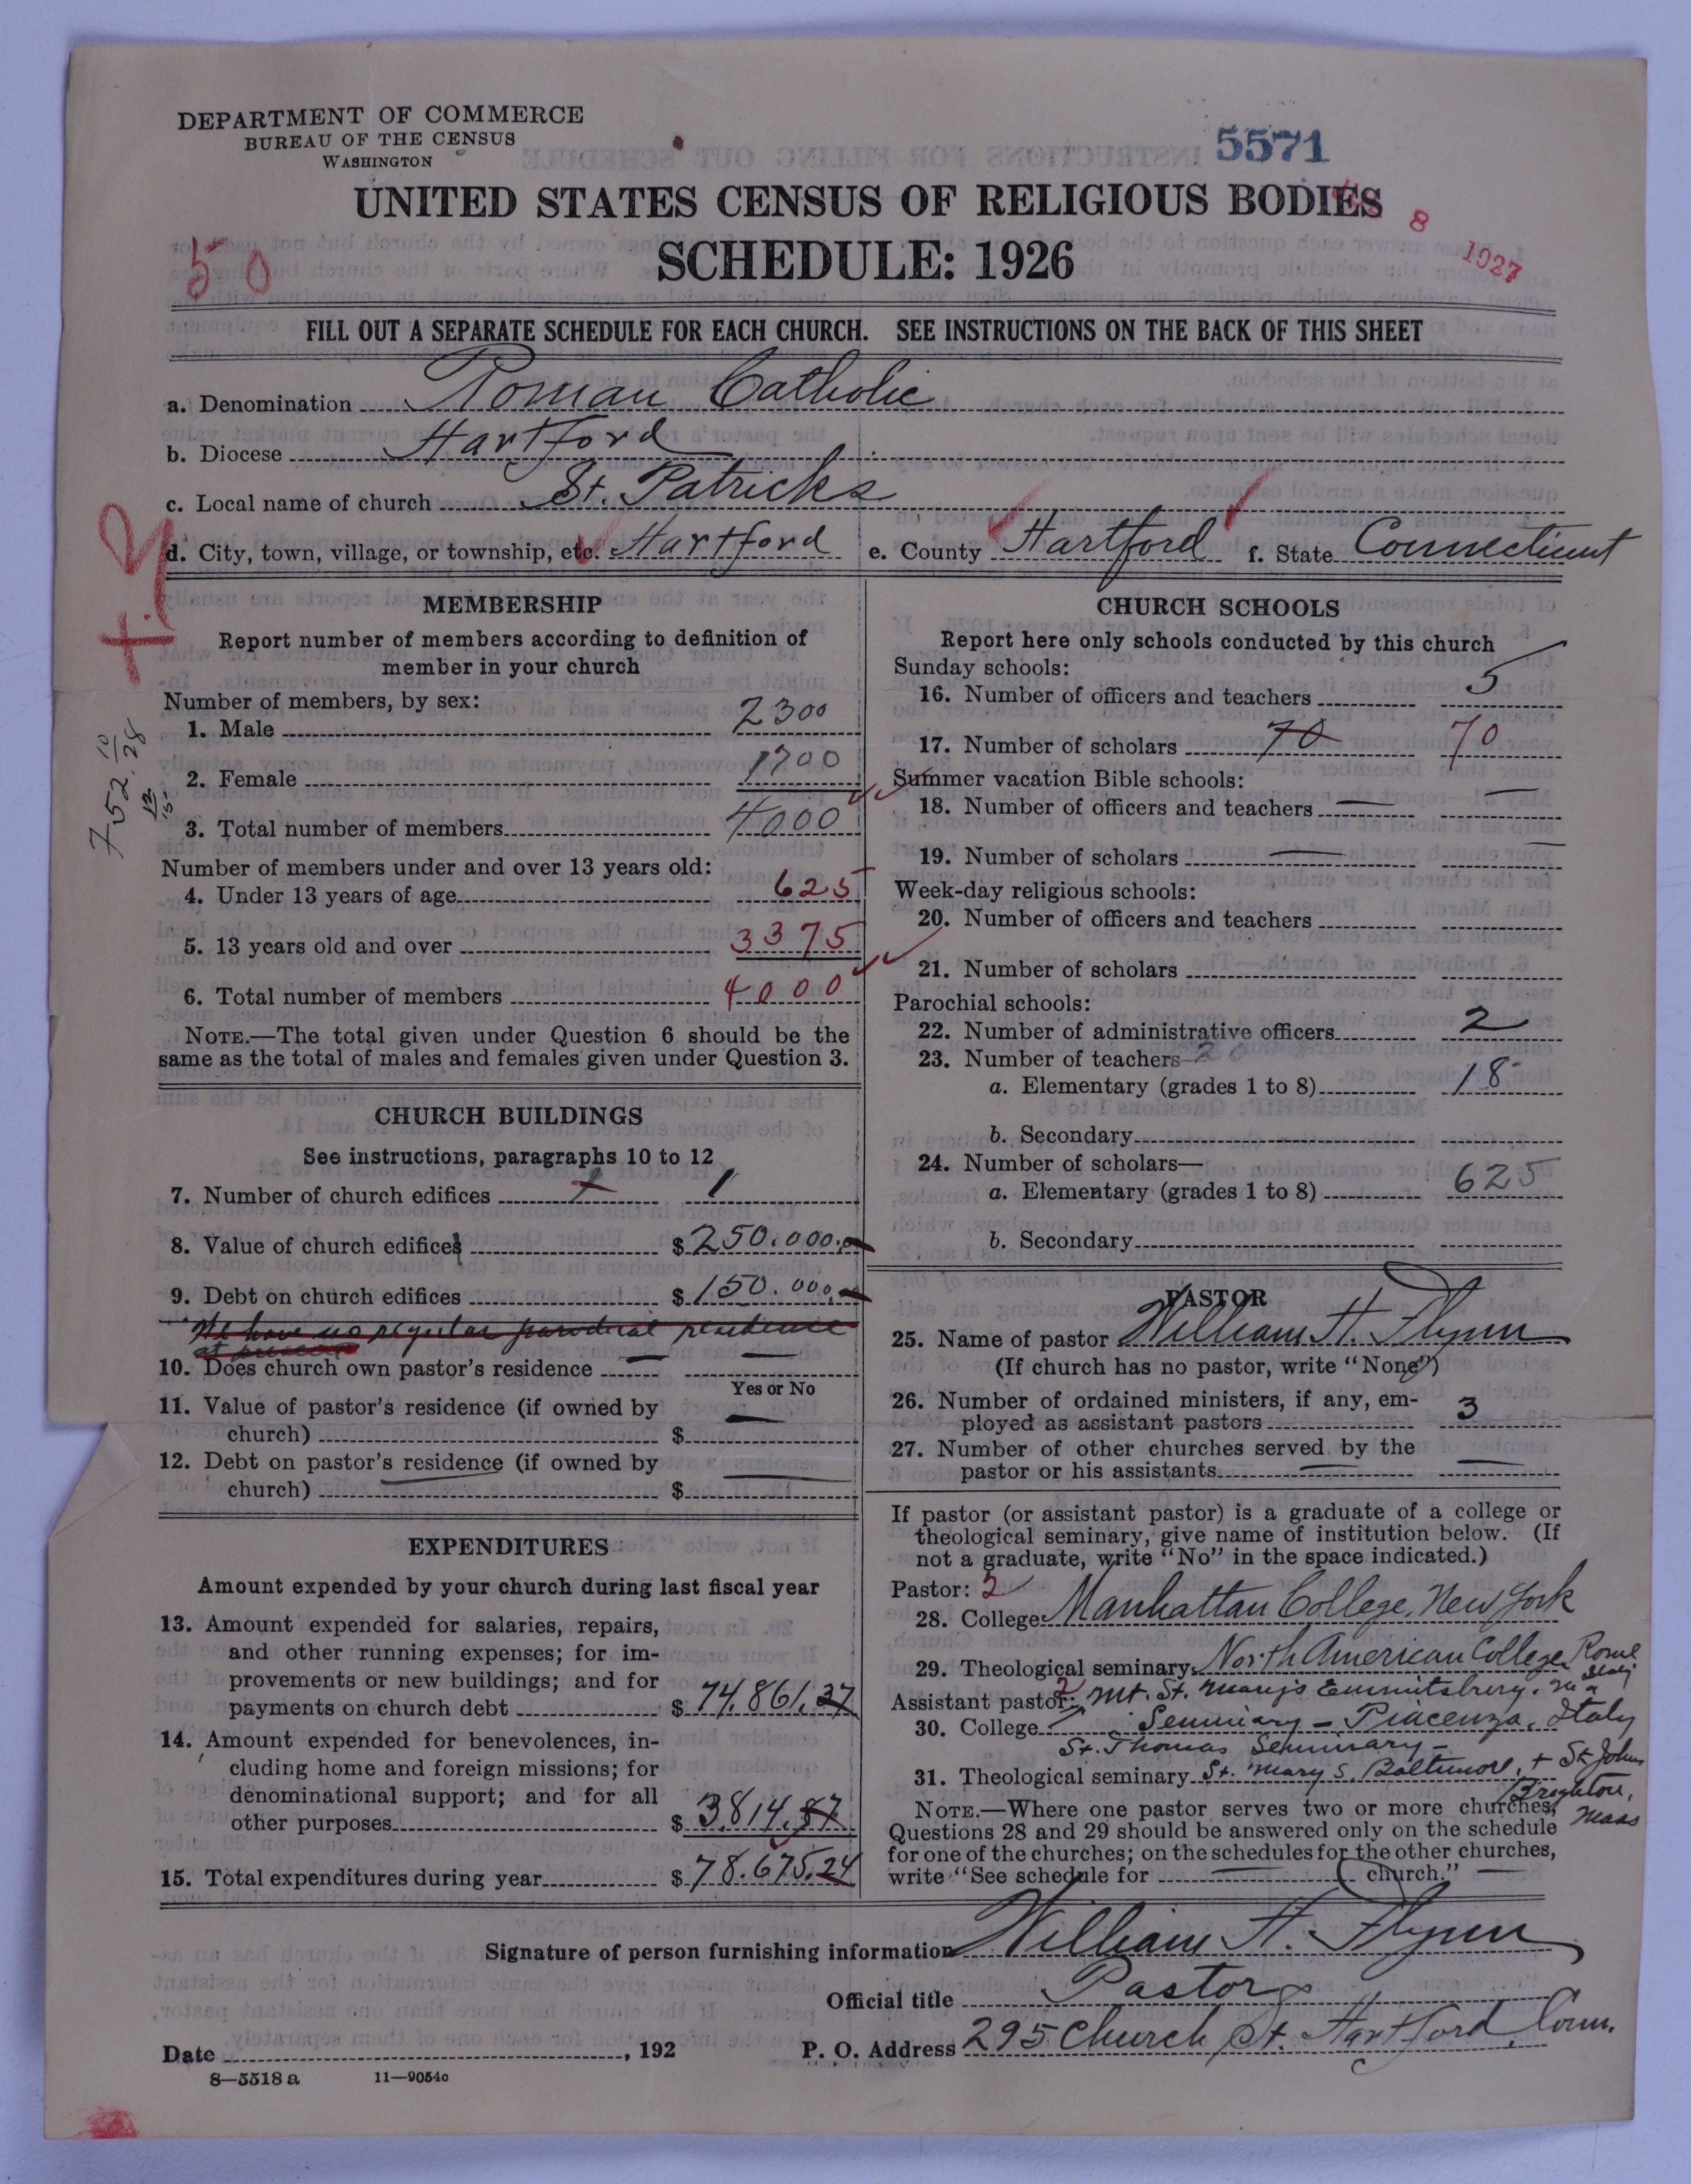 DEPARTMENT OF COMMERCE
BUREAU OF THE CENSUS
WASHINGTON
5571
UNITED STATES CENSUS OF RELIGIOUS BODIES
SCHEDULE: 1926
8 1927
50
FILL OUT A SEPARATE SCHEDULE FOR EACH CHURCH. SEE INSTRUCTIONS ON THE BACK OF THIS SHEET
a. Denomination Roman Catholic
b. Diocese Hartford
c. Local name of church St. Patricks
d. City, town, village, or township, etc. Hartford e. County Hartford f. State Connecticut
MEMBERSHIP
Report number of members according to definition of
member in your church
Number of members, by sex:
1. Male 2300
2. Female 1700
3. Total number of members 4000
Number of members under and over 13 years old:
4. Under 13 years of age 625
5. 13 years old and over 3375
6. Total number of members 4000
NOTE.—The total given under Question 6 should be the
same as the total of males and females given under Question 3.
752 10/28
CHURCH BUILDINGS
See instructions, paragraphs 10 to 12
7. Number of church edifices 1 1
8. Value of church edifices $250.000.00
9. Debt on church edifices $150.000.
We have no regular parochial residence
at present
10. Does church own pastor's residence —
Yes or No
11. Value of pastor's residence (if owned by
church) $ —
12. Debt on pastor's residence (if owned by
church) $ —
EXPENDITURES
Amount expended by your church during last fiscal year
13. Amount expended for salaries, repairs,
and other running expenses; for im-
provements or new buildings; and for
payments on church debt $ 74.861.37
14. Amount expended for benevolences, in-
cluding home and foreign missions; for
denominational support; and for all
other purposes $ 3.814.87
15. Total expenditures during year $ 78.675.24
CHURCH SCHOOLS
Report here only schools conducted by this church
Sunday schools:
16. Number of officers and teachers 5
17. Number of scholars 70 70
Summer vacation Bible schools:
18. Number of officers and teachers — —
19. Number of scholars — —
Week-day religious schools:
20. Number of officers and teachers
21. Number of scholars
Parochial schools:
22. Number of administrative officers 2
23. Number of teachers— 20
a. Elementary (grades 1 to 8) 18
b. Secondary
24. Number of scholars—
a. Elementary (grades 1 to 8) 625
b. Secondary
PASTOR
25. Name of pastor William H. Flynn
(If church has no pastor, write "None")
26. Number of ordained ministers, if any, em-
ployed as assistant pastors 3
27. Number of other churches served by the
pastor or his assistants — —
If pastor (or assistant pastor) is a graduate of a college or
theological seminary, give name of institution below. (If
not a graduate, write "No" in the space indicated.)
Pastor: 2
28. College Manhattan College, New York
29. Theological seminary North American College Rome Italy
Assistant pastor: 2 Mt. St. Mary's Emmitsburg. Md
30. College Seminary – Piacenza, Italy
St. Thomas Seminary –
31. Theological seminary St. Mary's, Baltimore, + St. Johns
Brighton, Mass
NOTE.—Where one pastor serves two or more churches,
Questions 28 and 29 should be answered only on the schedule
for one of the churches; on the schedules for the other churches,
write "See schedule for — church." —
Signature of person furnishing information William H. Flynn
Official title Pastor
Date , 192 P. O. Address 295 Church St. Hartford Conn.
8—5518 a 11—9054c